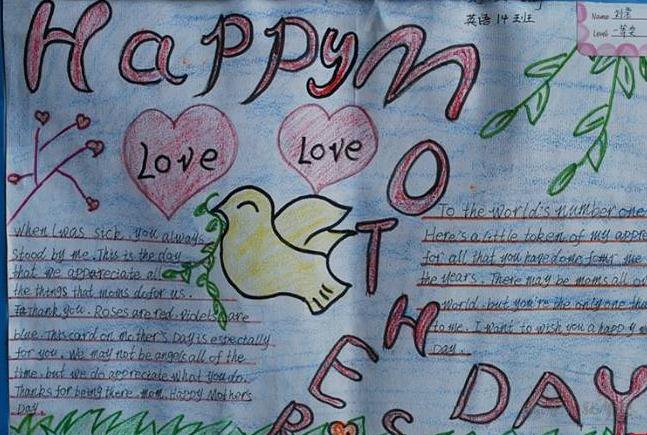 HAPPY MOTHER'S DAY
英语14班
Name 刘
Level 一等奖
Love
Love
When I was sick, you always
stood by me. This is the day
that we appareciate all
the things that moms do for us.
Thank you. Roses are red. Violets are
blue. This card on mother's Day is estectally
for you. We may not be angels all of the
time, but we do appreciate what you do.
Thanks for being there, mom. Happy Mother's
Day.
To the world's number one
Here's a little token of my appre
for all that you have done for me
the years. There may be moms all ov
world, but you're the only one tha
to me. I want to wish you a happy m
Day.